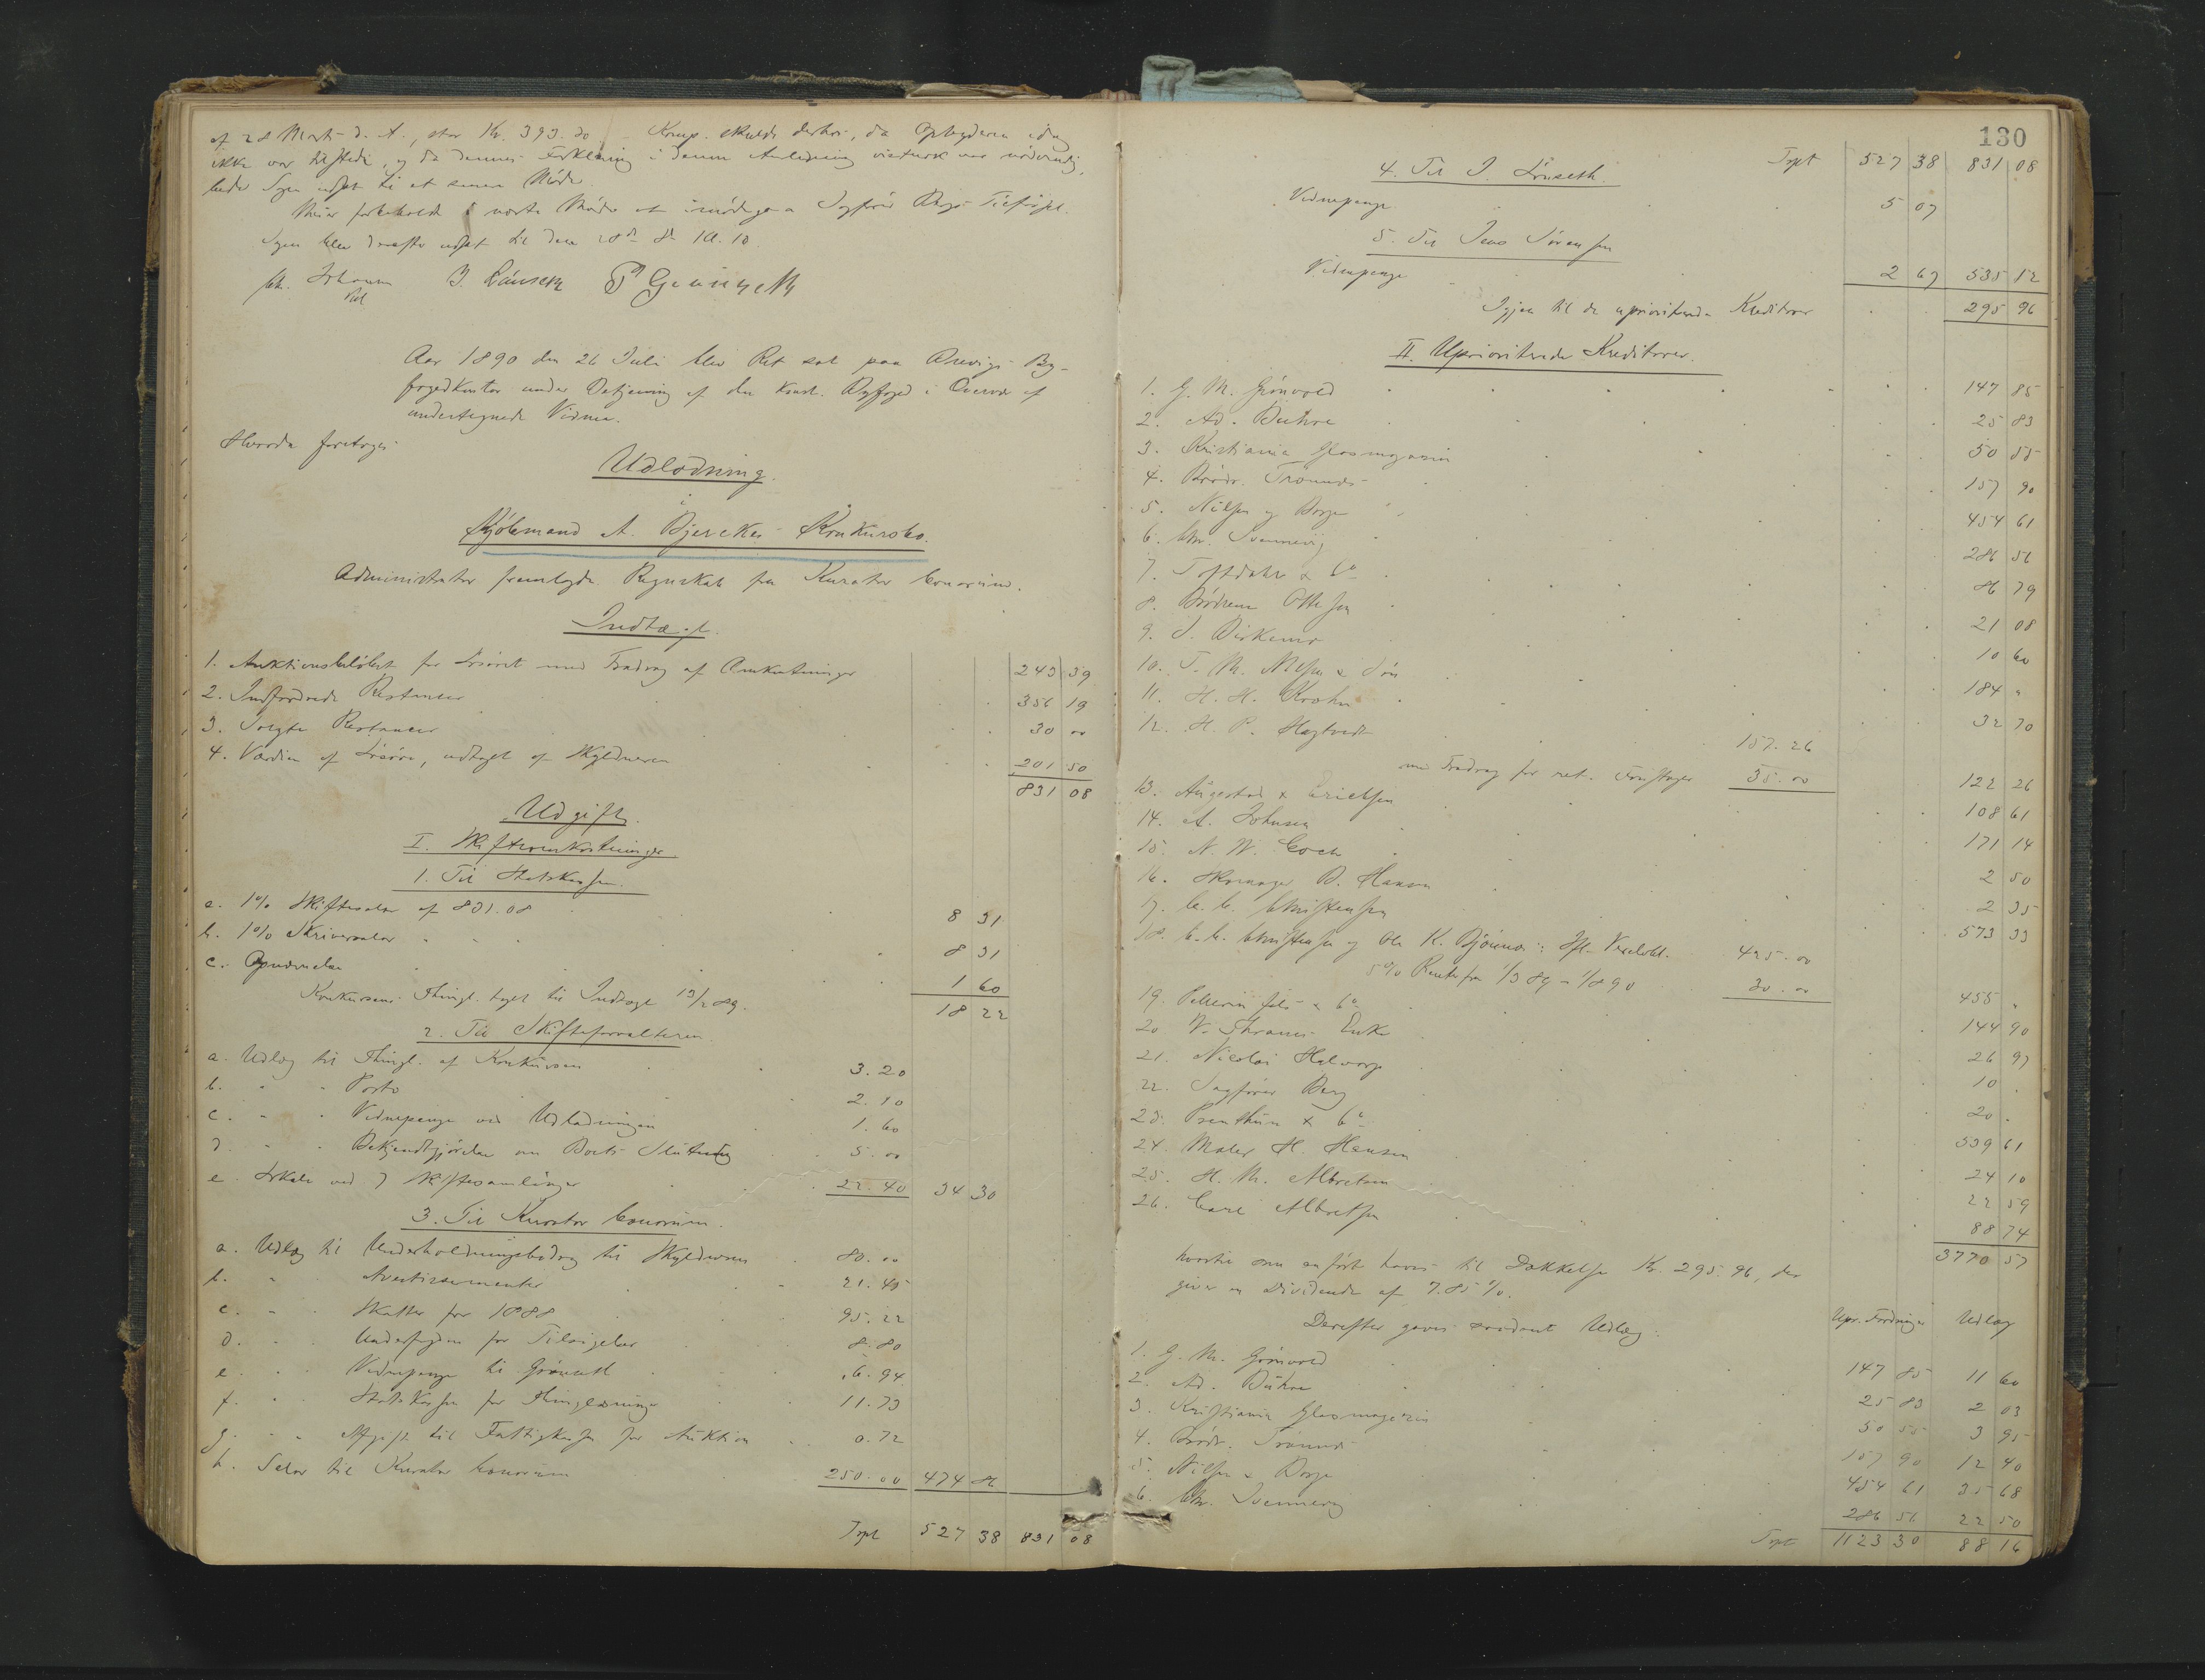 af 28 Marts d. A., stor Kr. 393.20 Komp. skulde derhos, da
ikke var tilstede, og da dennes Forklaring i denne Anledning var nødvendig,
bede Sagen udsat til et senere Møde.
forbeholdt i næste Møde at imødegaa Sagfører Bergs
Sagen blev derefter udsat til den 28de ds Kl. 10.
Chr. Johansen J. Lønseth P Grønseth
Aar 1890 den 26 Juli blev Ret sat paa By-
fogedkontor under Betjening af den konst. Byfoged i Overvær af
undertegnede Vidner.
Hvorda foretoges
Udlodning
i
Kjøbmand A. Bjerckes Konkursbo.
Administrator fremlagde Regnskab fra Kurator bonorum.
Indtægt.
1. Auktionsbeløbet for Løsøret med Fradrag af Omkostninger 243 39
2. Indfordrede Restancer 356 19
3. Solgte Restancer 30 00
4. Værdien af Løsøre, udtaget af Skyldneren 201 50
831 08
Udgift.
I. Skifteomkostninger
1. Til Statskassen.
a. 1% Skiftesalær af 831.08 8 31
b. 1% Skriversalær 8 31
c. 1 60
Konkursens Thingl. taget til Indtægt 13/2 89. 18 22
2. Til Skifteforvalteren
a. Udlæg til Thingl. af Konkursen 3.20
b. " " Porto 2.10
c. " " Vidnepenge ved Udlodningen 1.60
d. " " Bekjendtgjørelse om Boets Slutning 5.00
e. Lokale ved 7 Skiftesamlinger 22.40 34 30
3. Til Kurator bonorum.
a. Udlæg til Underholdningsbidrag til Skyldneren 80.00
b. " Avertissementer 21.45
c. " Skatter for 1888 95.22
d. " for Tilsigelser 8.80
e. " Vidnepenge til Grønseth 6.94
f. " Statskassen for Thinglæsninger 11.73
g. " Afgift til Fattigkassen for Auktion 0.72
h. Salær til Kurator bonorum 250.00 474 86
Trpt 527 38 831 08
130
Trpt 527 38 831 08
4. Til J. Lønseth.
Vidnepenge 5 07
5. Til Jens Sørensen
Vidnepenge 2 67 535 12
Igjen til de uprioriterede Kreditorer 295 96
II. Uprioriterede Kreditorer.
1. G. M. Grønvold 147 85
2. Ad. Buhre 25 83
3. Kristiania Glasmagasin 50 55
4. Brødr. 157 90
5. Nilsen og Borge 454 61
6. Chr. Svennevig 286 56
7. Toftdahl & Co 86 79
8. Brødrene Ottesen 21 08
9. J. 10 60
10. T. M. Nilsen & Søn 184 "
11. H. H. Krohn 32 70
12. H. P. Hagtvedt 157.26
med Fradrag for ret. Fustager 35.00 122 26
13. Augestad & Erichsen 108 61
14. A. Johnsen 171 14
15. N. W. Coch 2 50
16. Skomager B. Hansen 2 35
17. C. C. Christensen 573 33
18. C. C. Christensen og Ole K. Bjønnes ifl. Vexelobl. 425.00
5% Rente fra 1/3 89 - 1/8 90 30.00 455 "
19. Pellerin fils & Co 144 90
20 W. Thranes Enke 26 97
21. Nicolai Halvorsen 10 .
22. Sagfører Berg 20 .
23. & Co 539 61
24. Maler H. Hansen 24 10
25. H. M. Albretsen 22 59
26. Carl Albretsen 88 74
3770 57
hvortil som anført haves til Dækkelse Kr. 295.96, der
giver en Dividende af 7.85 %.
Derefter gaves saadant Udlæg: Upr. Fordringer Udlæg
1. G. M. Grønvold 147 85 11 60
2. Ad. Buhre 25 83 2 03
3. Kristiania Glasmagasin 50 55 3 95
4. Brødr. 157 90 12 40
5. Nilsen & Borge 454 61 35 68
6. Chr. Svennevig 286 56 22 50
Trpt 1123 30 88 16